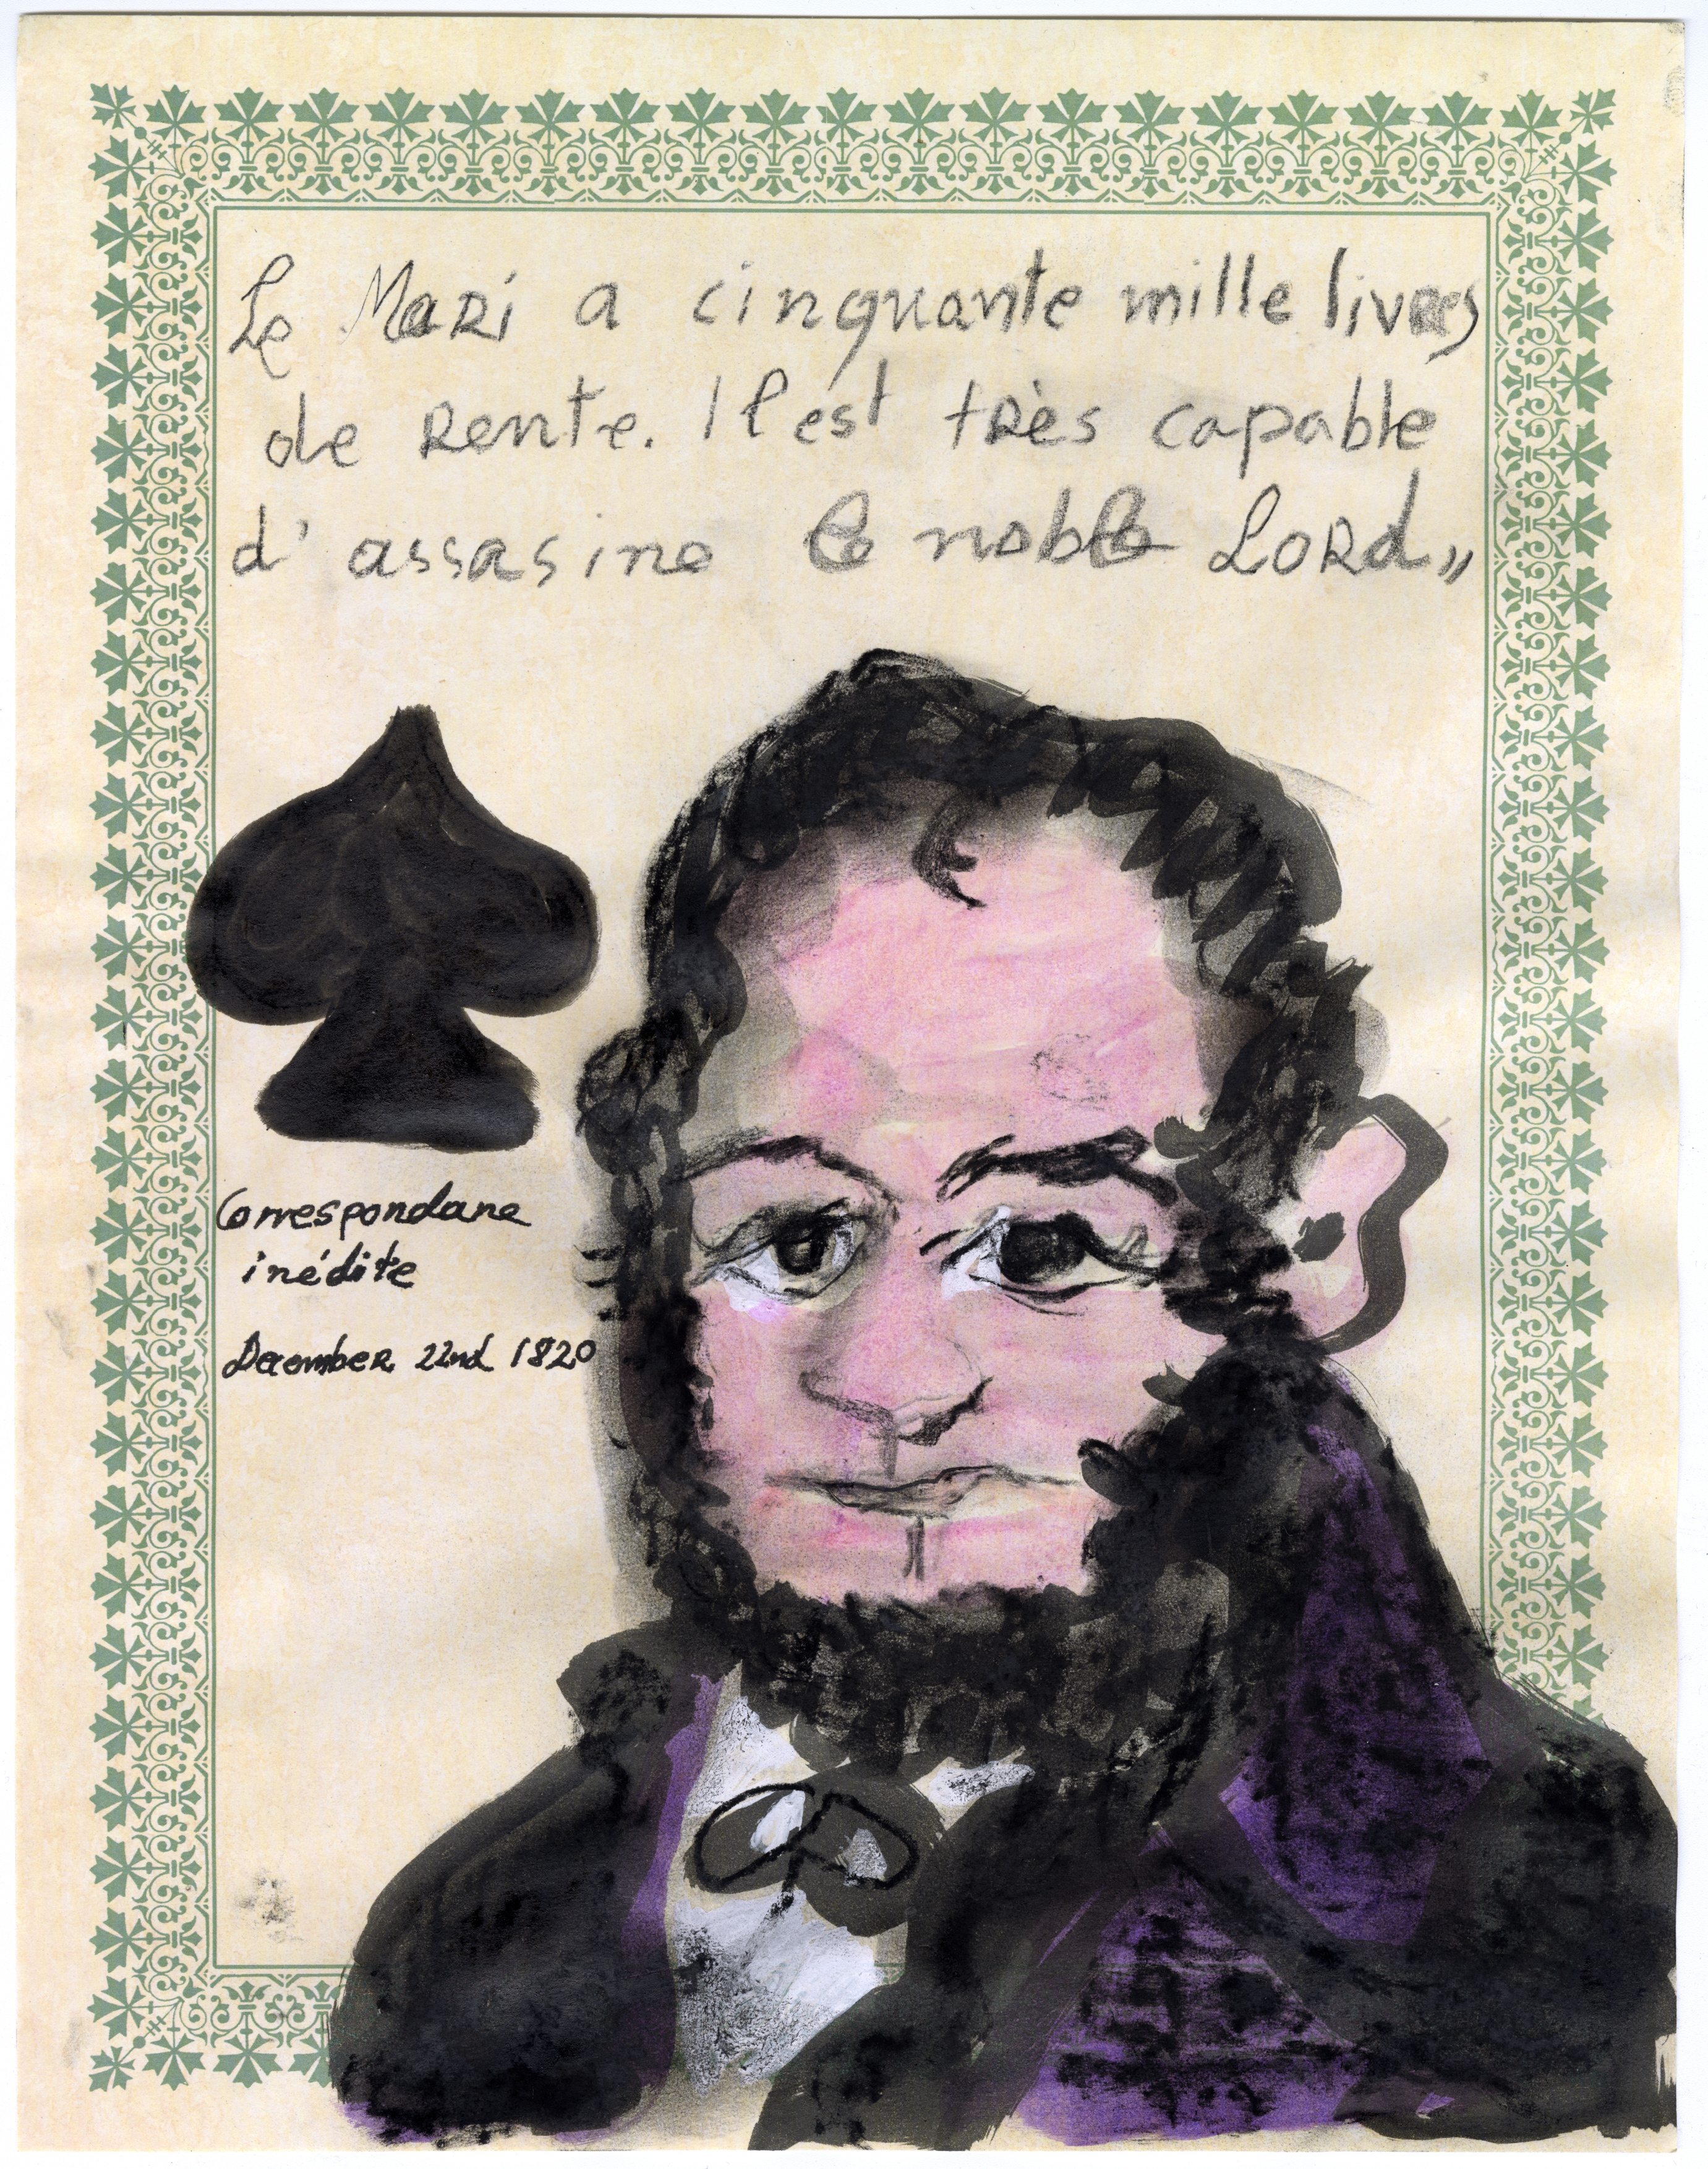 Le Mari a cinquante mille livres
de rente. Il est très capable
d'assasine le noble Lord"
Correspondance
inédite
December 22nd 1820